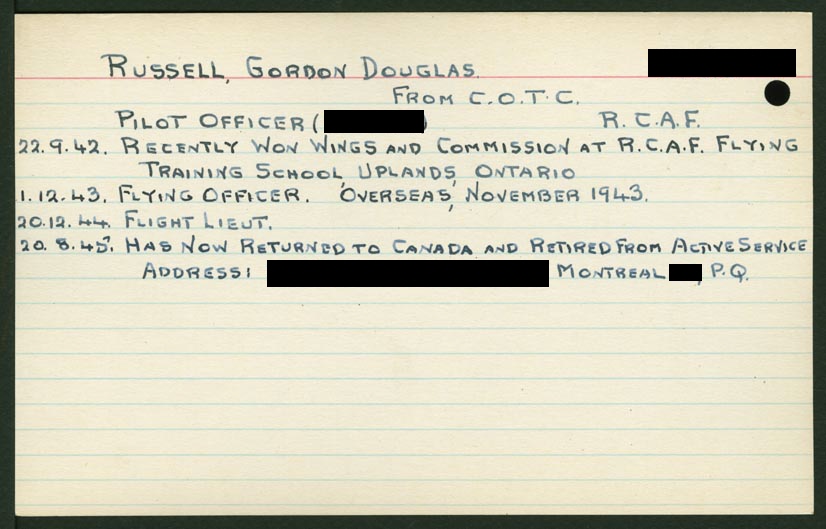 RUSSELL, GORDON DOUGLAS.
FROM C.O.T.C.
PILOT OFFICER ( ) R.C.A.F.
22.9.42. RECENTLY WON WINGS AND COMMISSION AT R.C.A.F. FLYING
TRAINING SCHOOL UPLANDS, ONTARIO
1.12.43. FLYING OFFICER. 'OVERSEAS', NOVEMBER 1943.
20.12.44. FLIGHT LIEUT.
20.8.45. HAS NOW RETURNED TO CANADA AND RETIRED FROM ACTIVE SERVICE
ADDRESS: MONTREAL , P.Q.